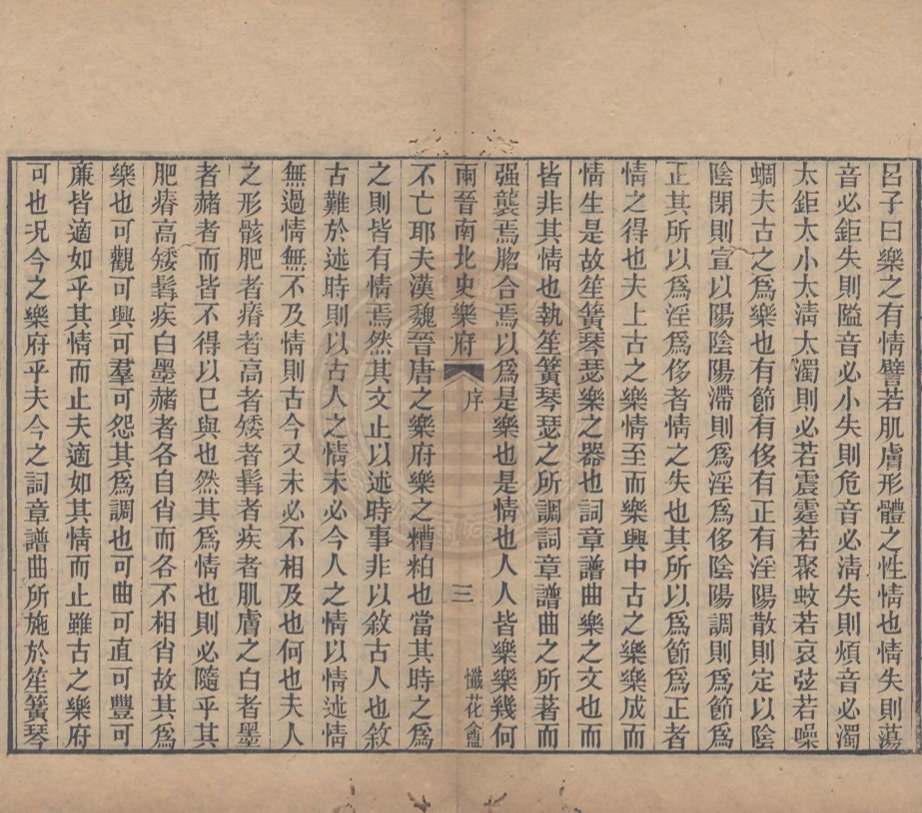 呂子曰樂之有情譬若肌膚形體之性情也情失則蕩
音必鉅失則隘音必小失則危音必淸失則煩音必濁
太鉅太小太淸太濁則必若震霆若聚蚊若哀弦若噪
蜩夫古之爲樂也有節有侈有正有淫陽散則定以陰
陰閉則宣以陽陰陽滯則爲淫爲侈陰陽調則爲節爲
正其所以爲淫爲侈者情之失也其所以爲節爲正者
情之得也夫上古之樂情至而樂興中古之樂樂成而
情生是故笙簧琴瑟樂之器也詞章譜曲樂之文也而
皆非其情也執笙簧琴瑟之所調詞章譜曲之所著而
强襲焉脗合焉以爲是樂也是情也人人皆樂樂幾何
兩晉南北史樂府 序 三 懺花盦
不亡耶夫漢魏晉唐之樂府樂之糟粕也當其時之爲
之則皆有情焉然其文止以述時事非以敘古人也敘
古難於述時則以古人之情未必今人之情以情述情
無過情無不及情則古今又未必不相及也何也夫人
之形骸肥者瘠者高者矮者髯者疾者肌膚之白者墨
者赭者而皆不得以巳與也然其爲情也則必隨乎其
肥瘠高矮髯疾白墨赭者各自肖而各不相肖故其爲
樂也可觀可興可羣可怨其爲調也可曲可直可豐可
廉皆適如乎其情而止夫適如其情而止雖古之樂府
可也況今之樂府乎夫今之詞章譜曲所施於笙簧琴